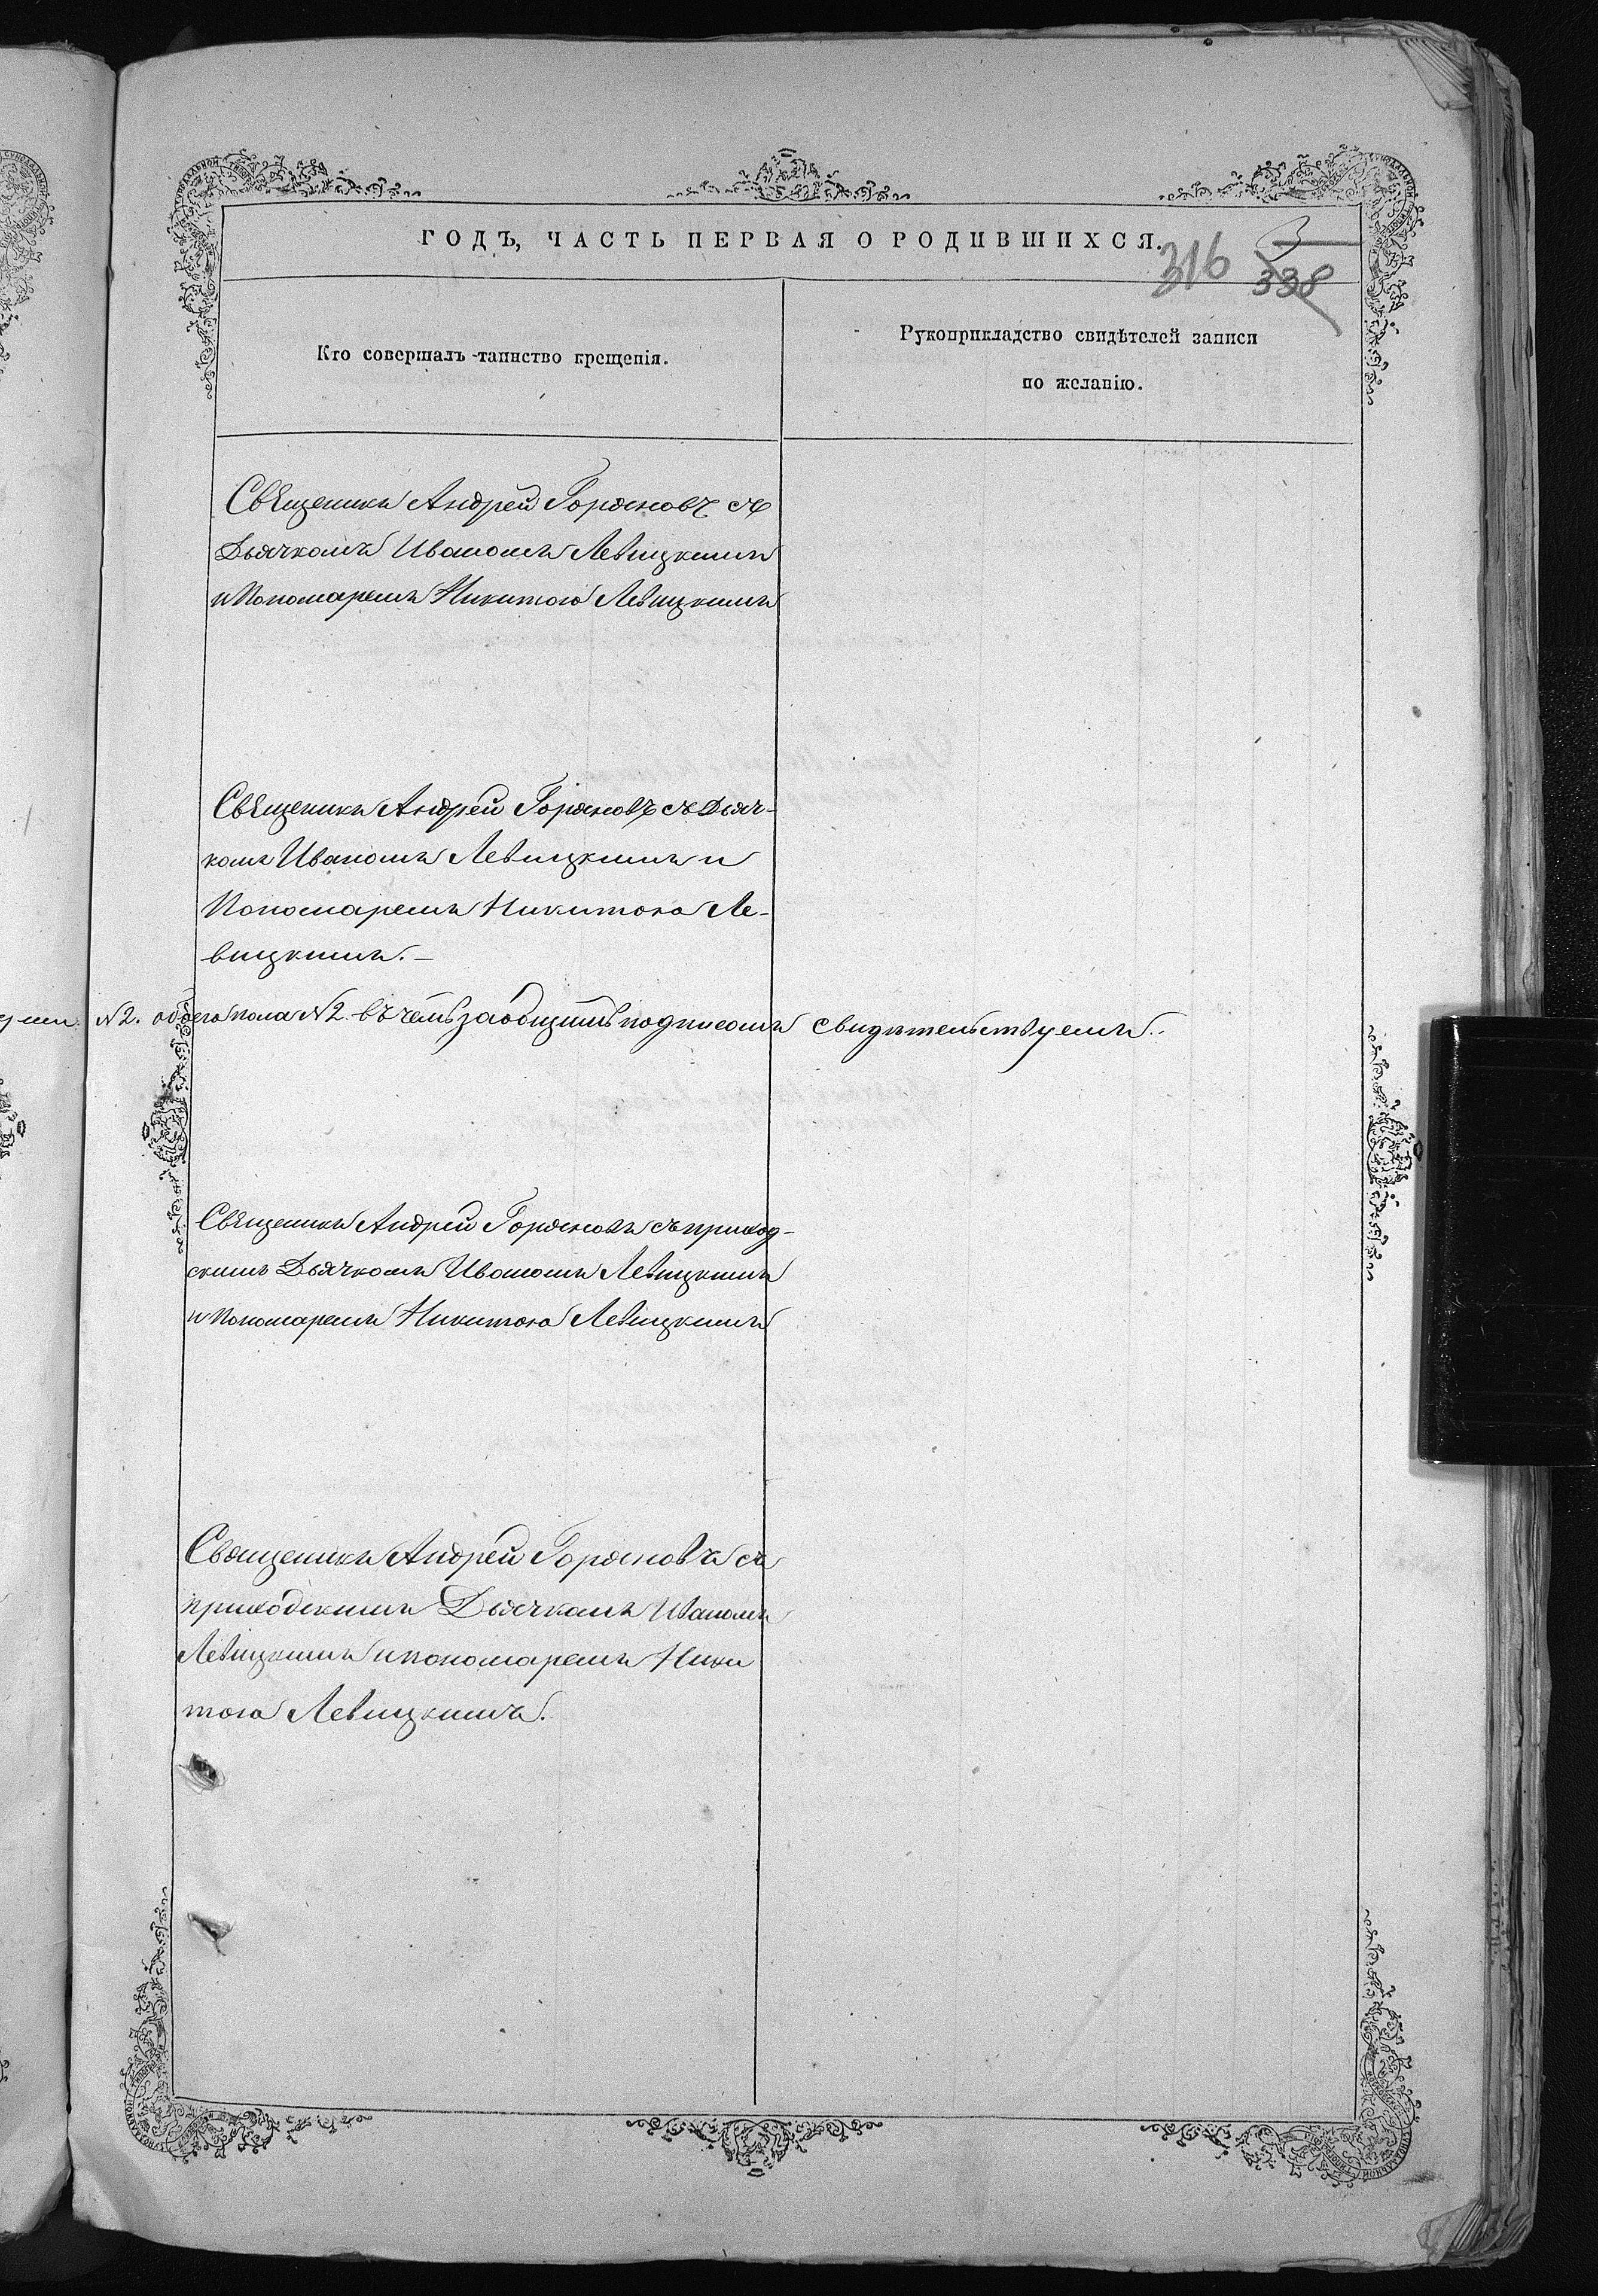 ГОДЪ, ЧАСТЬ ПЕРВАЯ О РОДИВШИХСЯ.
316 338
Кто совершалъ таинство крещенія.
Рукоприкладство свидѣтелей записи
по желанію.
Свѣщеникъ Андрей Горяновъ съ
Дьячкомъ Иваномъ Левицкимъ
и Пономаремъ Никитою Левицкимъ
Свѣщеникъ Андрей Горяновъ съ Дьяч-
комъ Иваномъ Левицкимъ и
Пономаремъ Никитою Ле-
вицкимъ. –
№2. обоего пола №2. въ чемъ заобщимъ подписомъ свидѣтельствуемъ.
Свѣщеникъ Андрей Горяновъ съ приход-
скимъ Дьячкомъ Иваномъ Левицкимъ
и Пономаремъ Никитою Левицкимъ
Священикъ Андрей Горяновъ съ
приходскимъ Дьячкомъ Иваномъ
Левицкимъ и пономаремъ Ники
тою Левицкимъ.